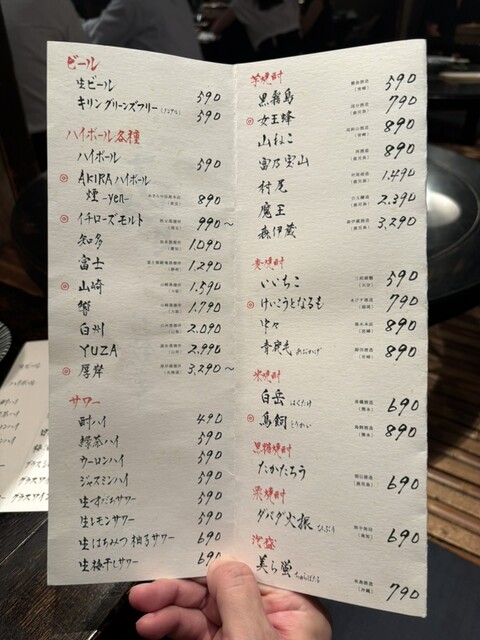 ビール
生ビール 590
キリン グリーンズフリー (ノンアル) 590
ハイボール各種
ハイボール 590
AKIRAハイボール
煙-yen- 890
イチローズモルト 990〜
知多 1.090
富士 1.290
山崎 1.590
響 1.790
白州 2.090
YUZA 2.990
厚岸 3.290〜
サワー
酎ハイ 490
緑茶ハイ 590
ウーロンハイ 590
ジャスミンハイ 590
生すだちサワー 590
生レモンサワー 590
生はちみつ柚子サワー 690
生梅干しサワー 690
芋焼酎
黒霧島 590
女王蜂 790
山ねこ 890
富乃宝山 890
村尾 1.490
魔王 2.390
森伊蔵 3,290
麦焼酎
いいちこ 590
けいこうとなるも 790
中々 890
青鹿毛 あおかげ 890
米焼酎
白岳 はくたけ 690
鳥飼 とりかい 890
黒糖焼酎
たかたろう 690
栗焼酎
ダバダ火振 ひぶり 690
泡盛
美ら蛍 ちゅらぼたる 790